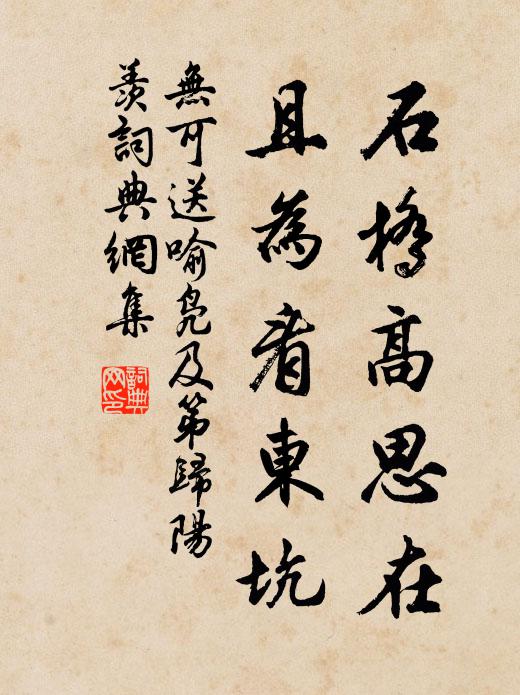 石橋高思在
且為看東坑
無可送喻鳧及第歸陽
羨詞典網集
詞典網印